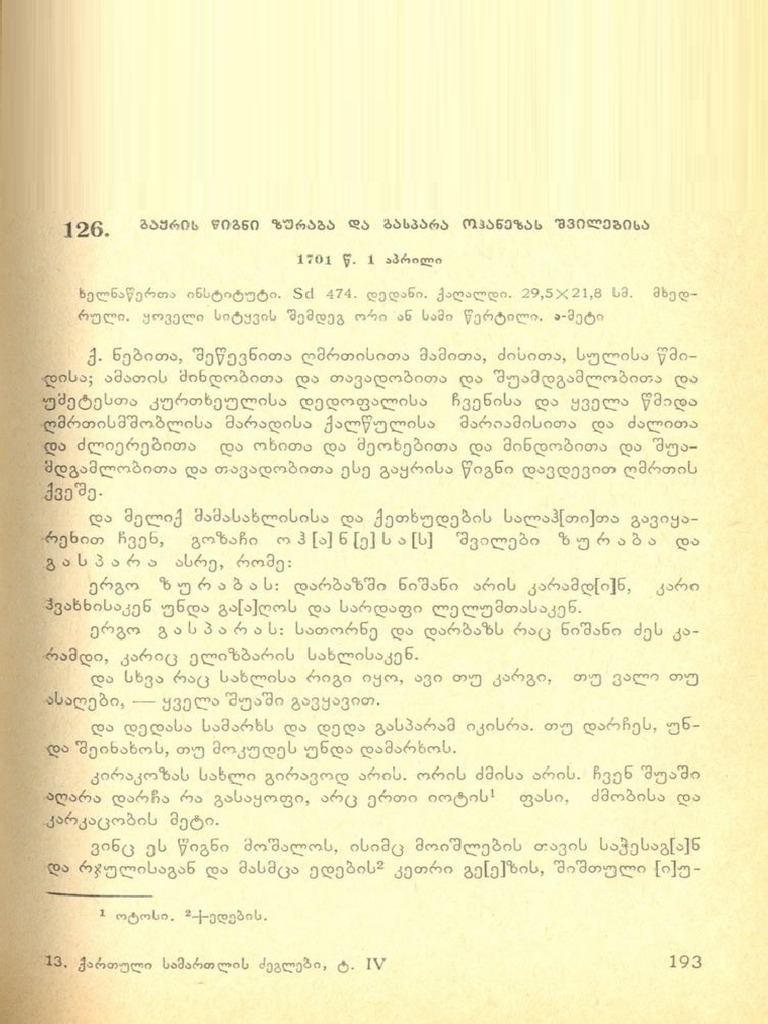 126. გაყრის წიგნი ზურაბა და გასპარა ოჰანეზას შვილებისა
1701 წ. 1 აპრილი
ხელნაწერთა ინსტიტუტი. Sd 474. დედანი. ქაღალდი. 29,5×21,8 სმ. მხედ-
რული. ყოველი სიტყვის შემდეგ ორი ან სამი წერტილი. ა-მეტი
ქ. ნებითა, შეწევნითა ღმრთისითა მამითა, ძისითა, სულისა წმი-
დისა; ამათის მინდობითა და თავადობითა და შუამდგამლობითა და
უმეტესთა კურთხეულისა დედოფალისა ჩვენისა და ყველა წმიდა
ღმრთისმშობლისა მარადისა ქალწულისა მარიამისითა და ძალითა
და ძლიერებითა და ოხითა და მეოხებითა და მინდობითა და შუა-
მდგამლობითა და თავადობითა ესე გაყრისა წიგნი დავდევით ღმრთის
ქვეშე.
და მელიქ მამასახლისისა და ქეთხუდების სალაჰ[თი]თა გავიყა-
რენით ჩვენ, გოზაჩი ოჰ[ა]ნ[ე]სა[ს] შვილები ზურაბა და
გასპარა ასრე, რომე:
ერგო ზურაბას: დარბაზში ნიშანი არის კარამდ[ი]ნ, კარი
ჰვანხისაკენ უნდა გა[ა]ღოს და სარდაფი ლელუმთასაკენ.
ერგო გასპარას: სათორნე და დარბაზს რაც ნიშანი ძეს კა-
რამდი, კარიც ელიზბარის სახლისაკენ.
და სხვა რაც სახლისა რიგი იყო, ავი თუ კარგი, თუ ვალი თუ
ასაღები, — ყველა შუაში გავყავით.
და დედასა სამარხს და დედა გასპარამ იკისრა. თუ დარჩეს, უნ-
და შეინახოს, თუ მოკუდეს უნდა დამარხოს.
კირაკოზას სახლი გირავოდ არის. ორის ძმისა არის. ჩვენ შუაში
აღარა დარჩა რა გასაყოფი, არც ერთი იოტის¹ ფასი, ძმობისა და
კარკაცობის მეტი.
ვინც ეს წიგნი მოშალოს, ისიმც მოიშლების თავის საჭესაგ[ა]ნ
და რჯულისაგან და მასმცა ედების² კეთრი გე[ე]ზის, შიშთული [ი]უ-
¹ ოტოსი. ²+ედების.
13. ქართული სამართლის ძეგლები, ტ. IV
193